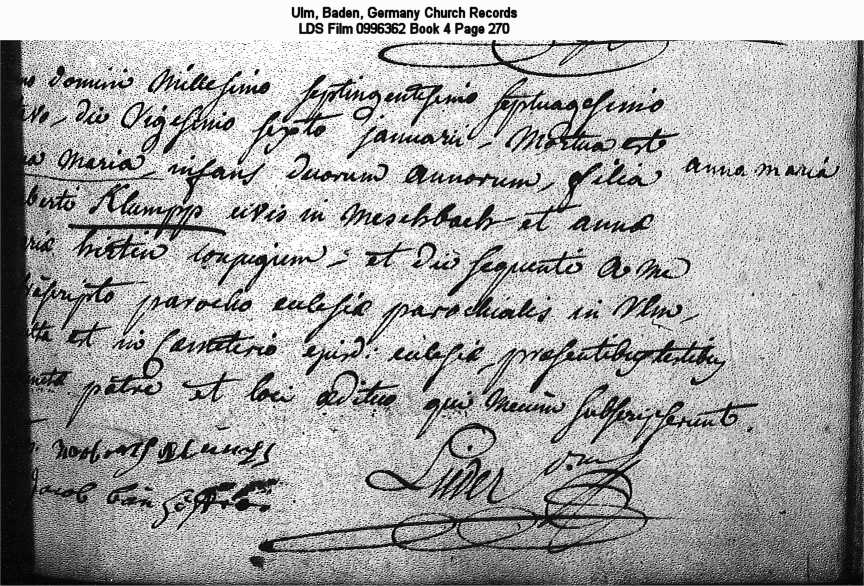 Ulm, Baden, Germany Church Records
LDS Film 0996362 Book 4 Page 270
domini Millesimo septingentesimo septuagesimo
die Vigesimo sexto januarii, Mortua est
Maria, infans duorum annorum, filia
anna maria
berti Klumpp civis in Meschbach et annæ
riæ hirtin conjugum, et die sequenti a me
scripto parocho ecclesiæ parochialis in Ulm,
est in Cæmeterio ejusd: ecclesiæ, præsentibus testibus
patre et loci ædituo qui mecum subscripserunt.
jacob
Lider